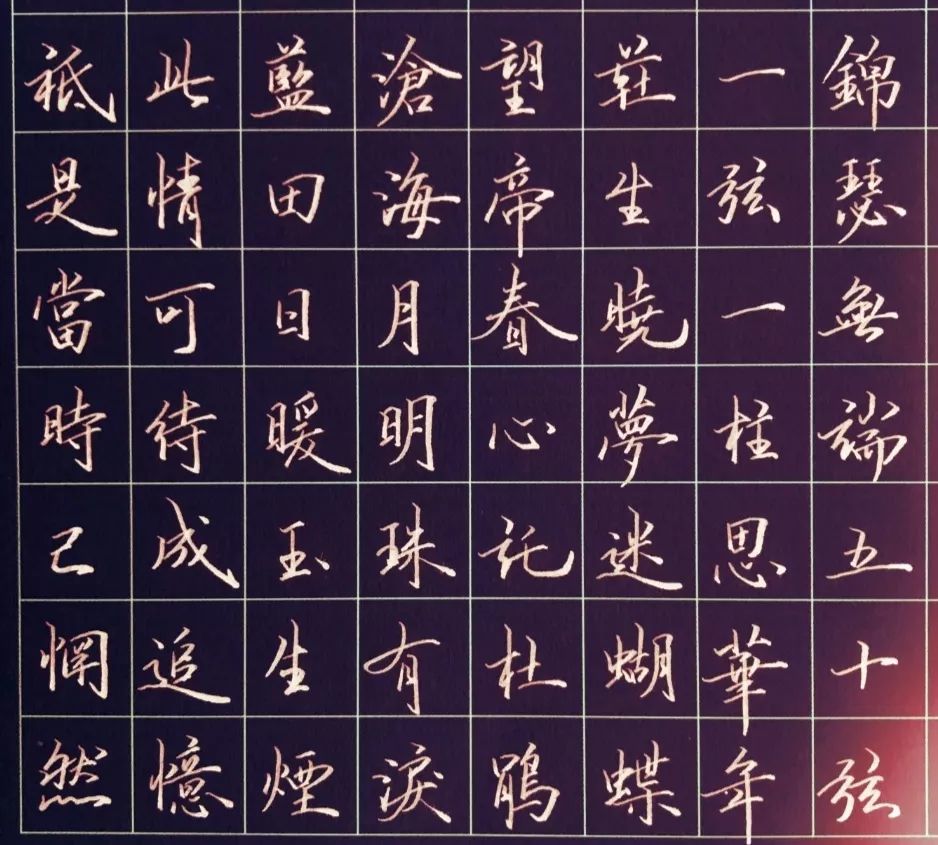 錦瑟無端五十弦
一弦一柱思華年
莊生曉夢迷蝴蝶
望帝春心託杜鵑
滄海月明珠有淚
藍田日暖玉生煙
此情可待成追憶
祗是當時已惘然